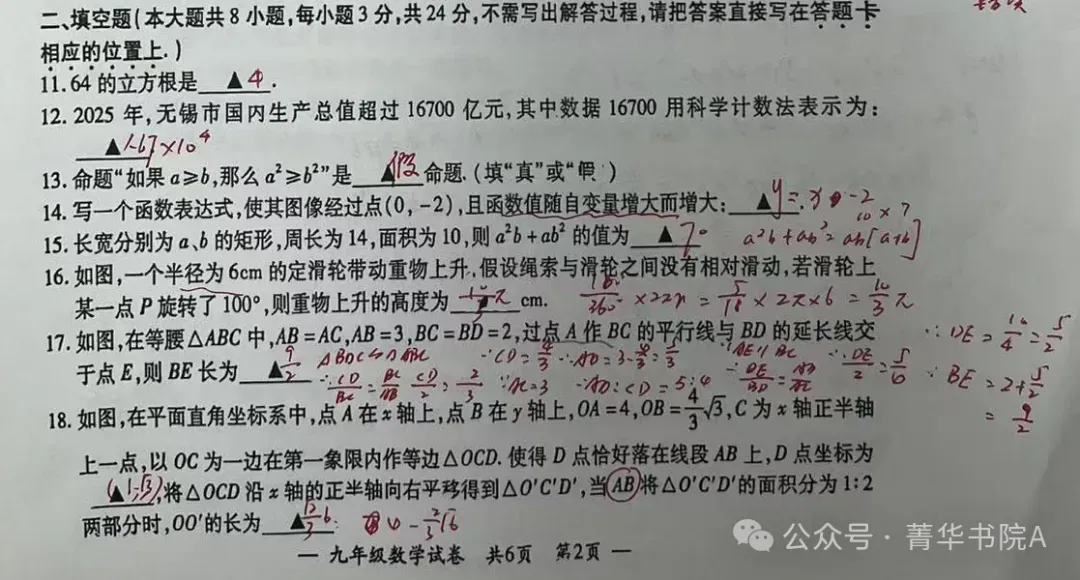 二、填空题(本大题共8小题,每小题3分,共24分,不需写出解答过程,请把答案直接写在答题卡
相应的位置上.)
11.64的立方根是 ▲4 .
12.2025年,无锡市国内生产总值超过16700亿元,其中数据16700用科学计数法表示为:
▲1.67×10⁴
13.命题“如果a≥b,那么a²≥b²”是 ▲假 命题.(填“真”或“假”)
14.写一个函数表达式,使其图像经过点(0,-2),且函数值随自变量增大而增大: ▲y=x-2 .
10×7
15.长宽分别为a、b的矩形,周长为14,面积为10,则a²b+ab²的值为 ▲70 a²b+ab²=ab[a+b]
16.如图,一个半径为6cm的定滑轮带动重物上升,假设绳索与滑轮之间没有相对滑动,若滑轮上
某一点P旋转了100°,则重物上升的高度为 ▲10/3π cm. =5/18×2π×6=10/3π
17.如图,在等腰△ABC中,AB=AC,AB=3,BC=BD=2,过点A作BC的平行线与BD的延长线交 ∵DE=10/4=5/2
∵CD=4/3 ∴AD=3-4/3=5/3 ∵AE∥BC ∵DE/2=5/4
于点E,则BE长为 ▲9/2 ∵CD/BC=BC/AB CD/2=2/3 ∵AC=3 ∴AD:CD=5:4 ∵BE=2+5/2
=9/2
18.如图,在平面直角坐标系中,点A在x轴上,点B在y轴上,OA=4,OB=4/3√3,C为x轴正半轴
上一点,以OC为一边在第一象限内作等边△OCD.使得D点恰好落在线段AB上,D点坐标为
▲(1,√3) ,将△OCD沿x轴的正半轴向右平移得到△O'C'D',当AB将△O'C'D'的面积分为1:2
两部分时,OO'的长为 ▲ .
— 九年级数学试卷 共6页 第2页 —
公众号·菁华书院A